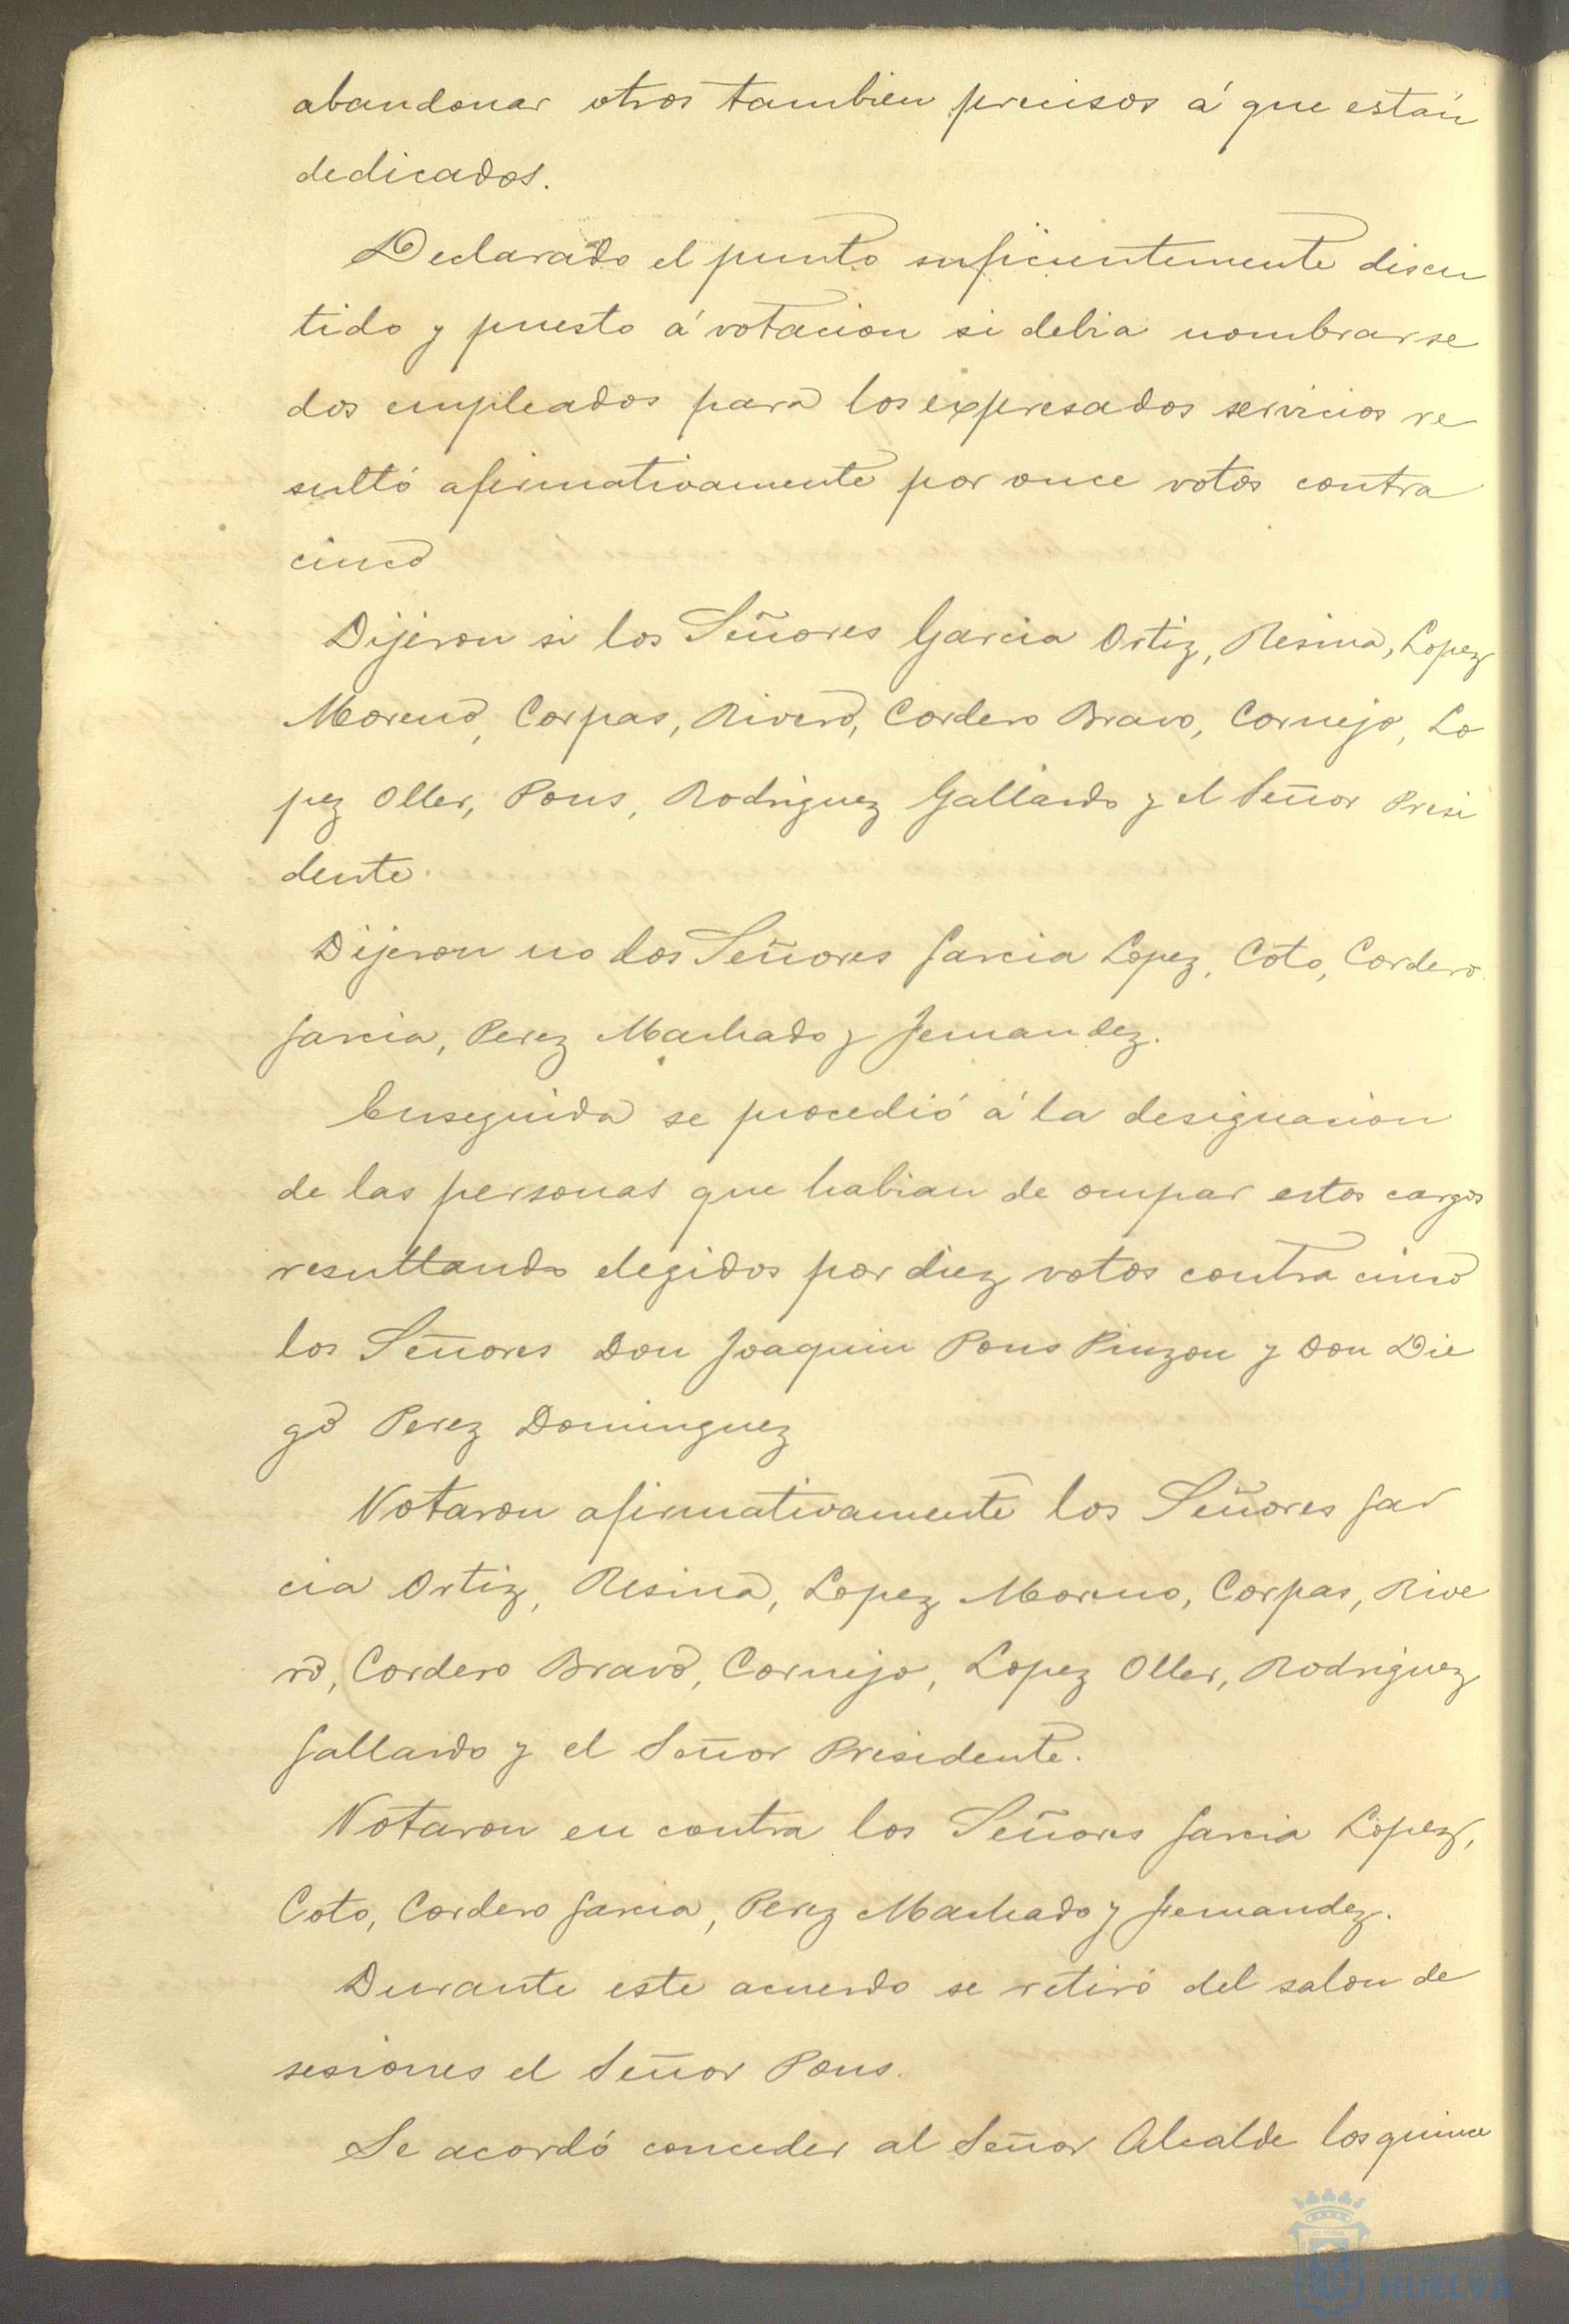 abandonar otros tambien precisos á que están
dedicados.
Declarado el punto suficientemente discu
tido y puesto á votacion si debia nombrarse
dos empleados para los expresados servicios re
sultó afirmativamente por once votos contra
cinco
Dijeron si los Señores Garcia Ortiz, Resina, Lopez
Moreno, Corpas, Rivero, Cordero Bravo, Cornejo, Lo
pez Oller, Pons, Rodriguez Gallardo y el Señor Presi
dente.
Dijeron no los Señores Garcia Lopez, Coto, Cordero
Garcia, Perez Machado y Fernandez.
Enseguida se procedió á la designacion
de las personas que habian de ocupar estos cargos
resultando elegidos por diez votos contra cinco
los Señores Don Joaquin Pons Pinzon y Don Die
go Perez Dominguez
Votaron afirmativamente los Señores Gar
cia Ortiz, Resina, Lopez Moreno, Corpas, Rive
ro, Cordero Bravo, Cornejo, Lopez Oller, Rodriguez
Gallardo y el Señor Presidente.
Votaron en contra los Señores Garcia Lopez,
Coto, Cordero Garcia, Perez Machado y Fernandez.
Durante este acuerdo se retiró del salon de
sesiones el Señor Pons.
Se acordó conceder al Señor Alcalde los quince
HUELVA